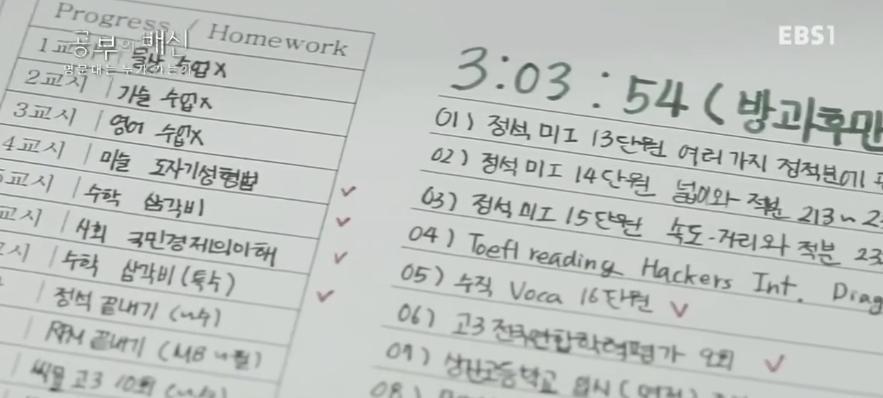 Progress / Homework
공부의 배신
EBS1
1교시 수업x
2교시 기술 수업x
3교시 영어 수업x
4교시 미술 도자기성형법
교시 수학 삼각비
교시 사회 국민경제의이해
교시 수학 삼각비 (특수)
정석 끝내기
RPM 끝내기
고3 10회
3:03:54 (방과후만
01) 정석 미I 13단원 여러가지 정적분에
02) 정석 미I 14단원 넓이와 적분 213~
03) 정석 미I 15단원 속도-거리와 적분 23
04) Toefl reading Hackers Int. Diag
05) 수직 Voca 16단원
06) 고3 전국연합학력평가
09)
08)